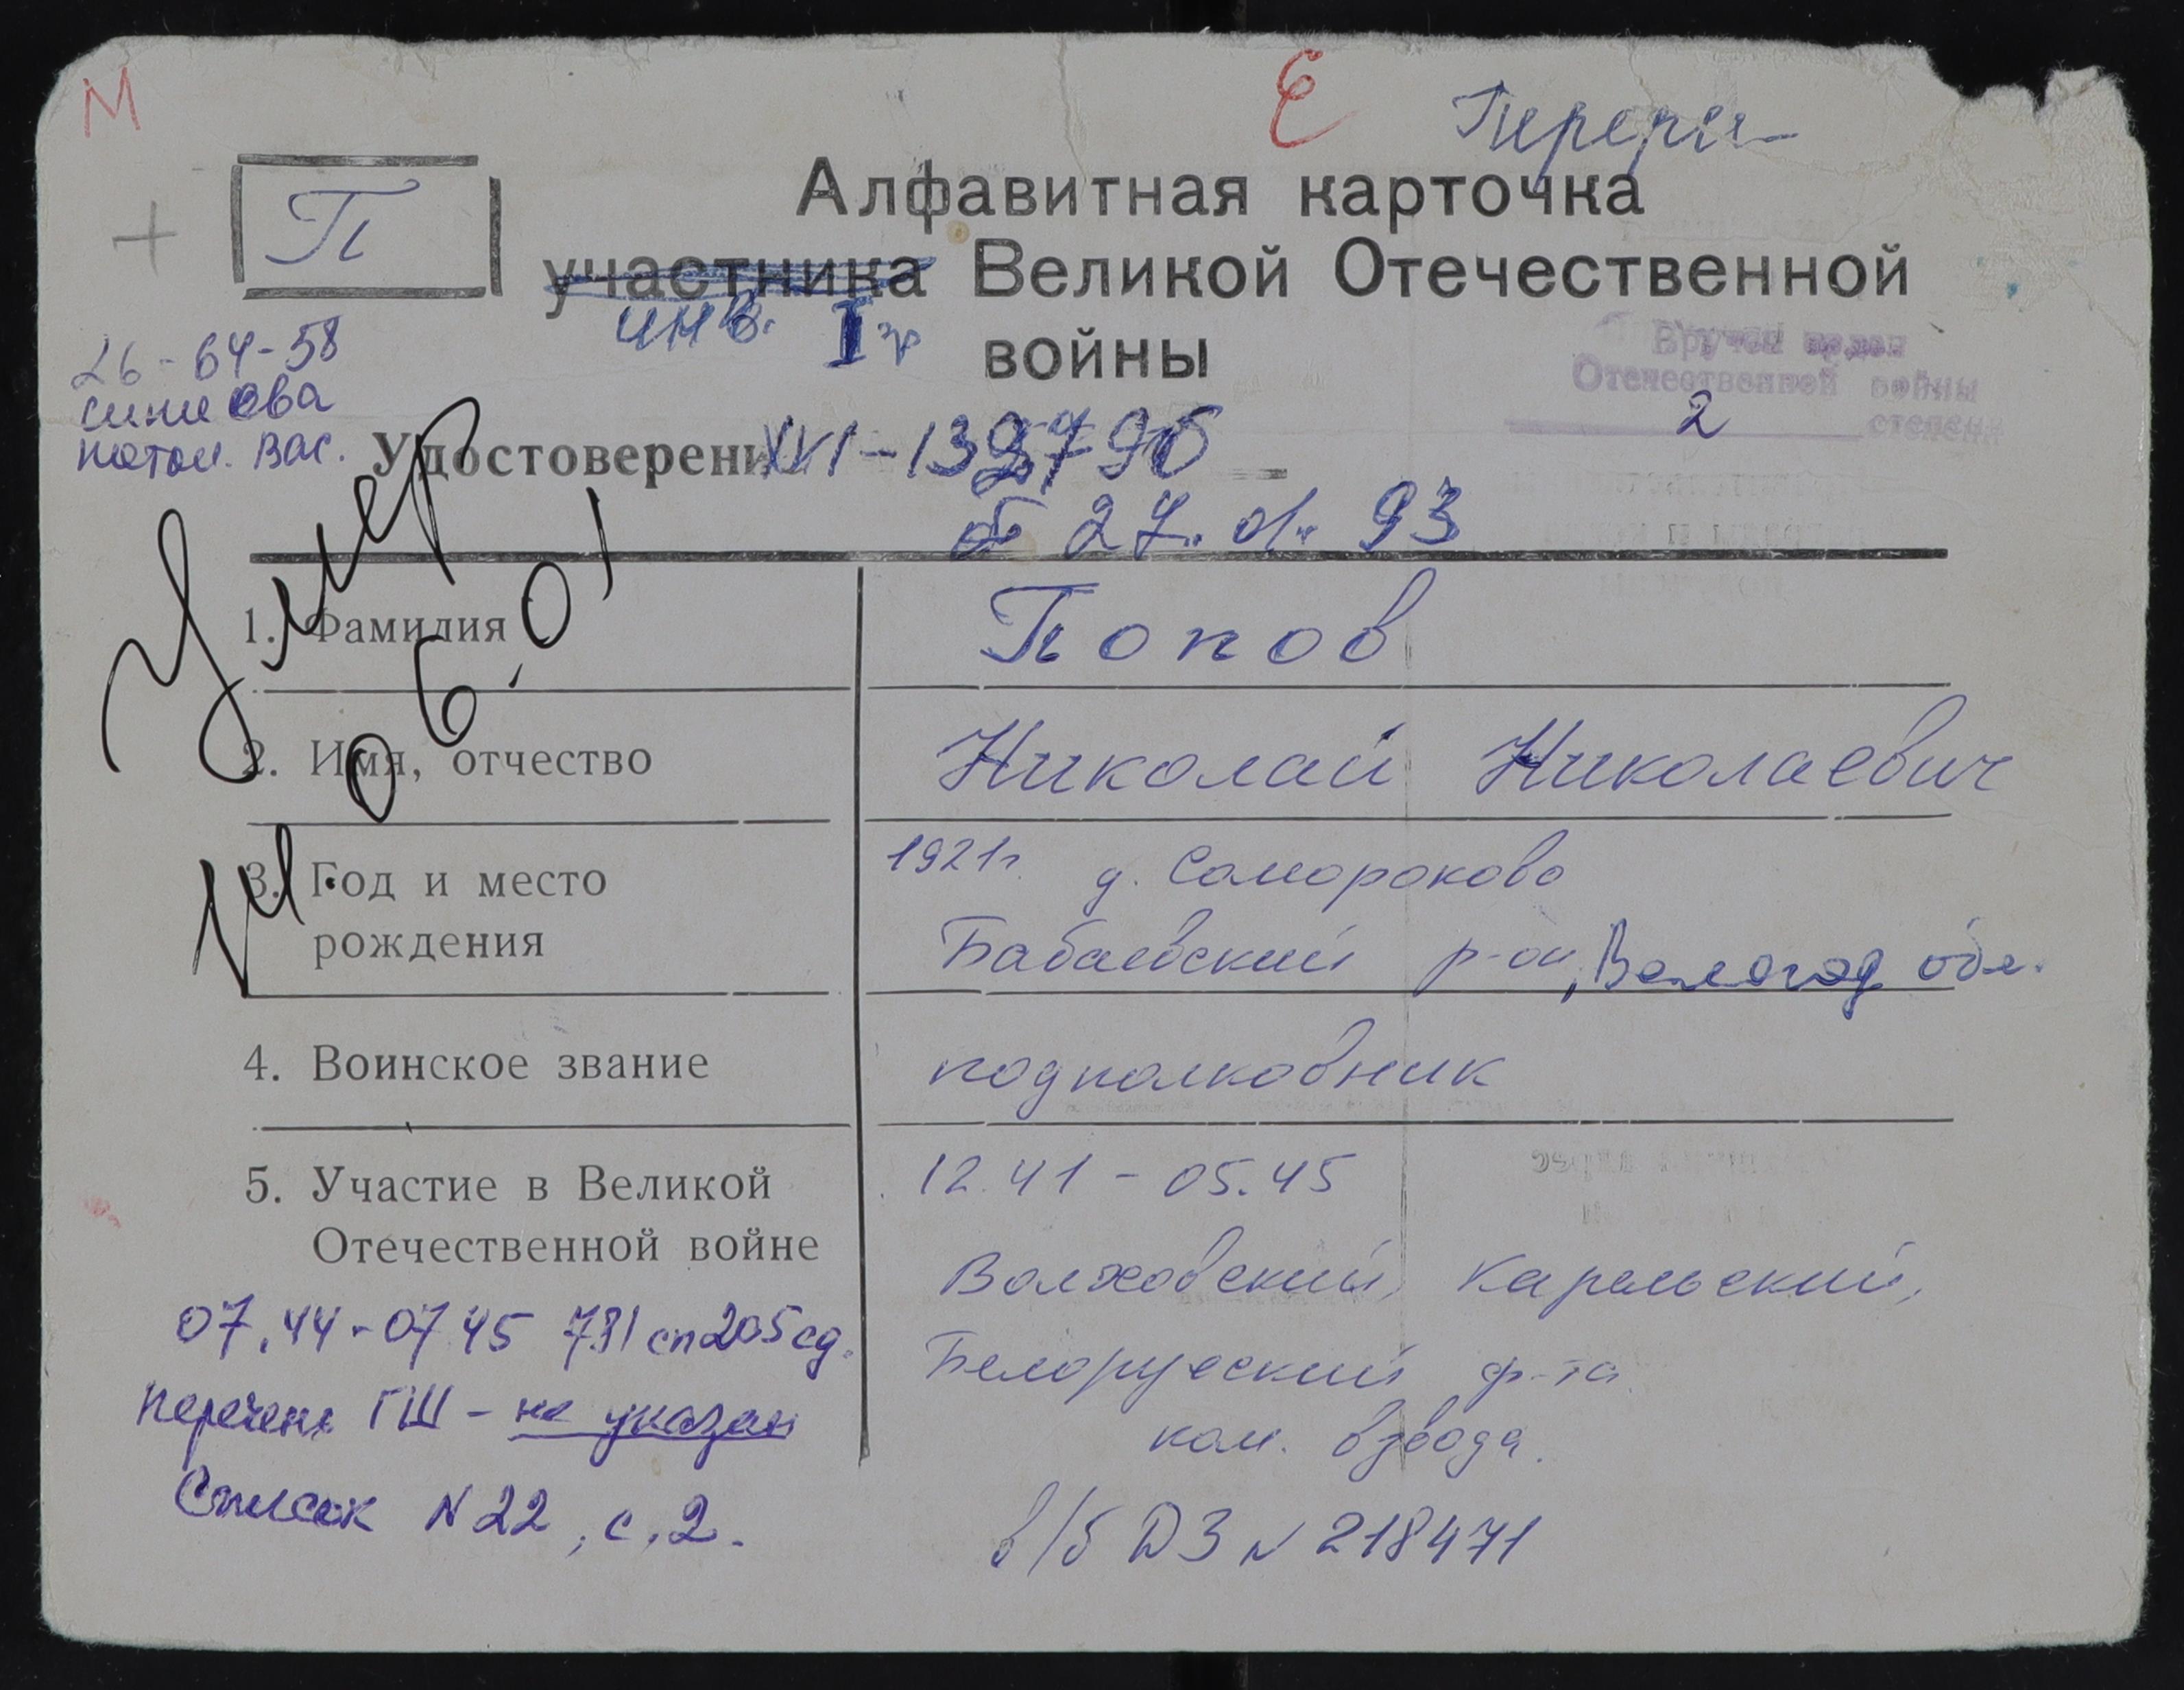 М
Е
П
Алфавитная карточка
участника Великой Отечественной
инв. I гр
войны
26-64-58
Вручен орден
Отечественной войны
2 степени
Удостоверени
от 27.01.93
Умер
06.01
1. Фамилия
Попов
2. Имя, отчество
Николай Николаевич
3. Год и место
рождения
1921г. д. Самороково
Бабаевский р-он, Вологод обл.
4. Воинское звание
подполковник
5. Участие в Великой
Отечественной войне
12.41 - 05.45
Волховский, Карельский,
Белорусский ф-та
ком. взвода.
в/б ДЗ N 218471
07.44-07.45 731 сп 205 сд.
перечень ГШ - не указан
Список N 22, с. 2.